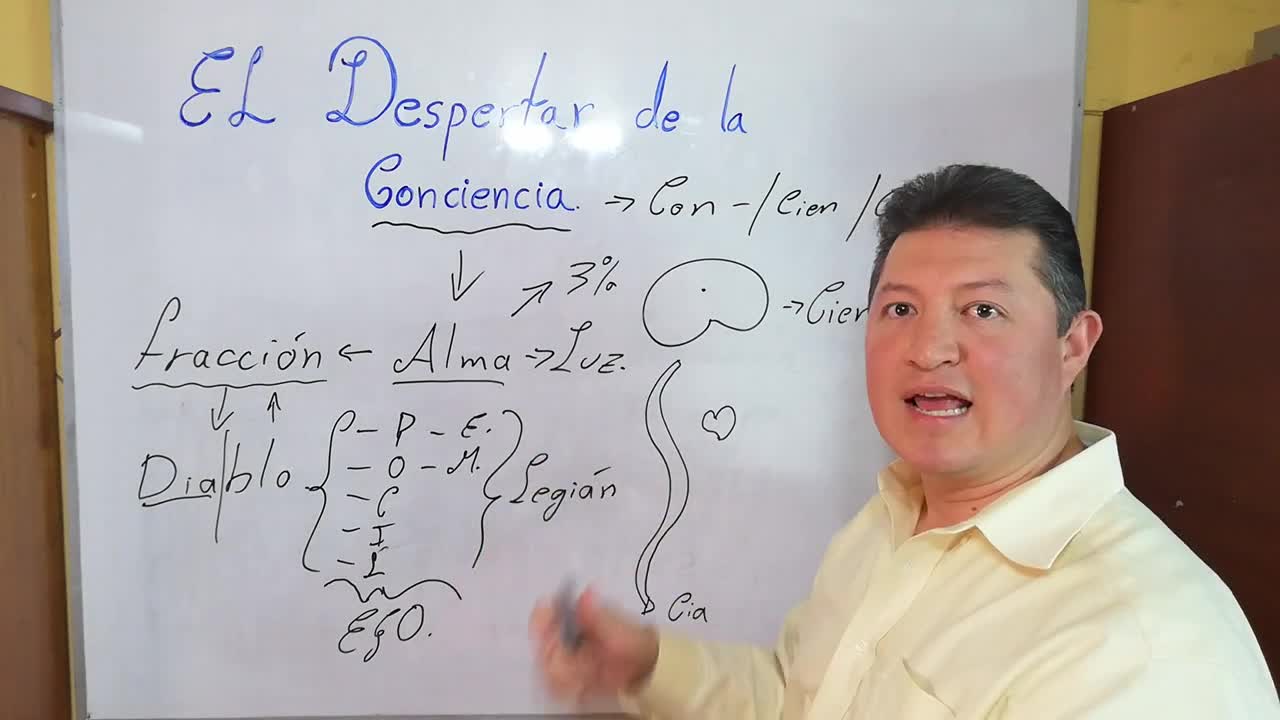 EL Despertar de la
Conciencia. → Con - / Cien / C
↗ 3%
→ Cien
fracción ← Alma → Luz.
Dia/blo { - P - E. } Legián
- O - M.
- C
- I
- L
EGO.
Cia